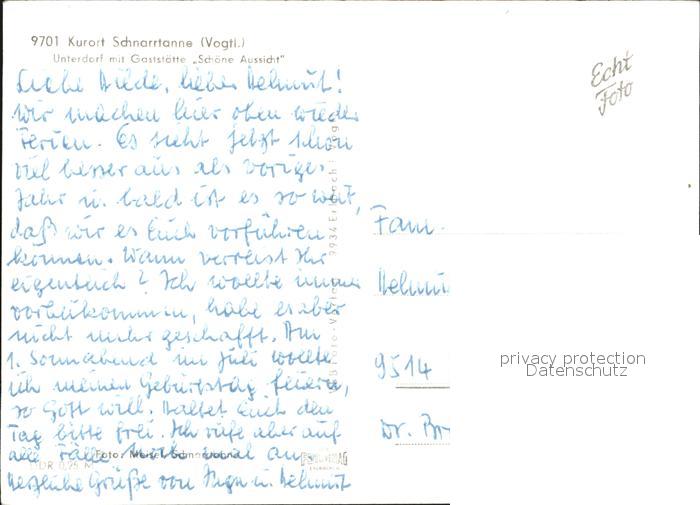 9701 Kurort Schnarrtanne (Vogtl.)
Unterdorf mit Gaststätte „Schöne Aussicht"
Echt
Foto
Liebe Hilde, lieber Helmut!
Wir machen hier oben wieder
Ferien. Es sieht jetzt schon
viel besser aus als voriges
Jahr u. bald ist es so weit,
daß wir es Euch vorführen
können. Wann verreist Ihr
eigentlich? Ich wollte immer
vorbeikommen, habe es aber
nicht mehr geschafft. Am
1. Sonnabend im Juli wollte
ich meinen Geburtstag feiern,
so Gott will. Haltet Euch den
Tag bitte frei. Ich rufe aber auf
alle Fälle noch mal an.
Herzliche Grüße von u. Helmut
Foto:
DDR 0,25 M
Fam.
Helmu
9514
Dr. Br
privacy protection
Datenschutz